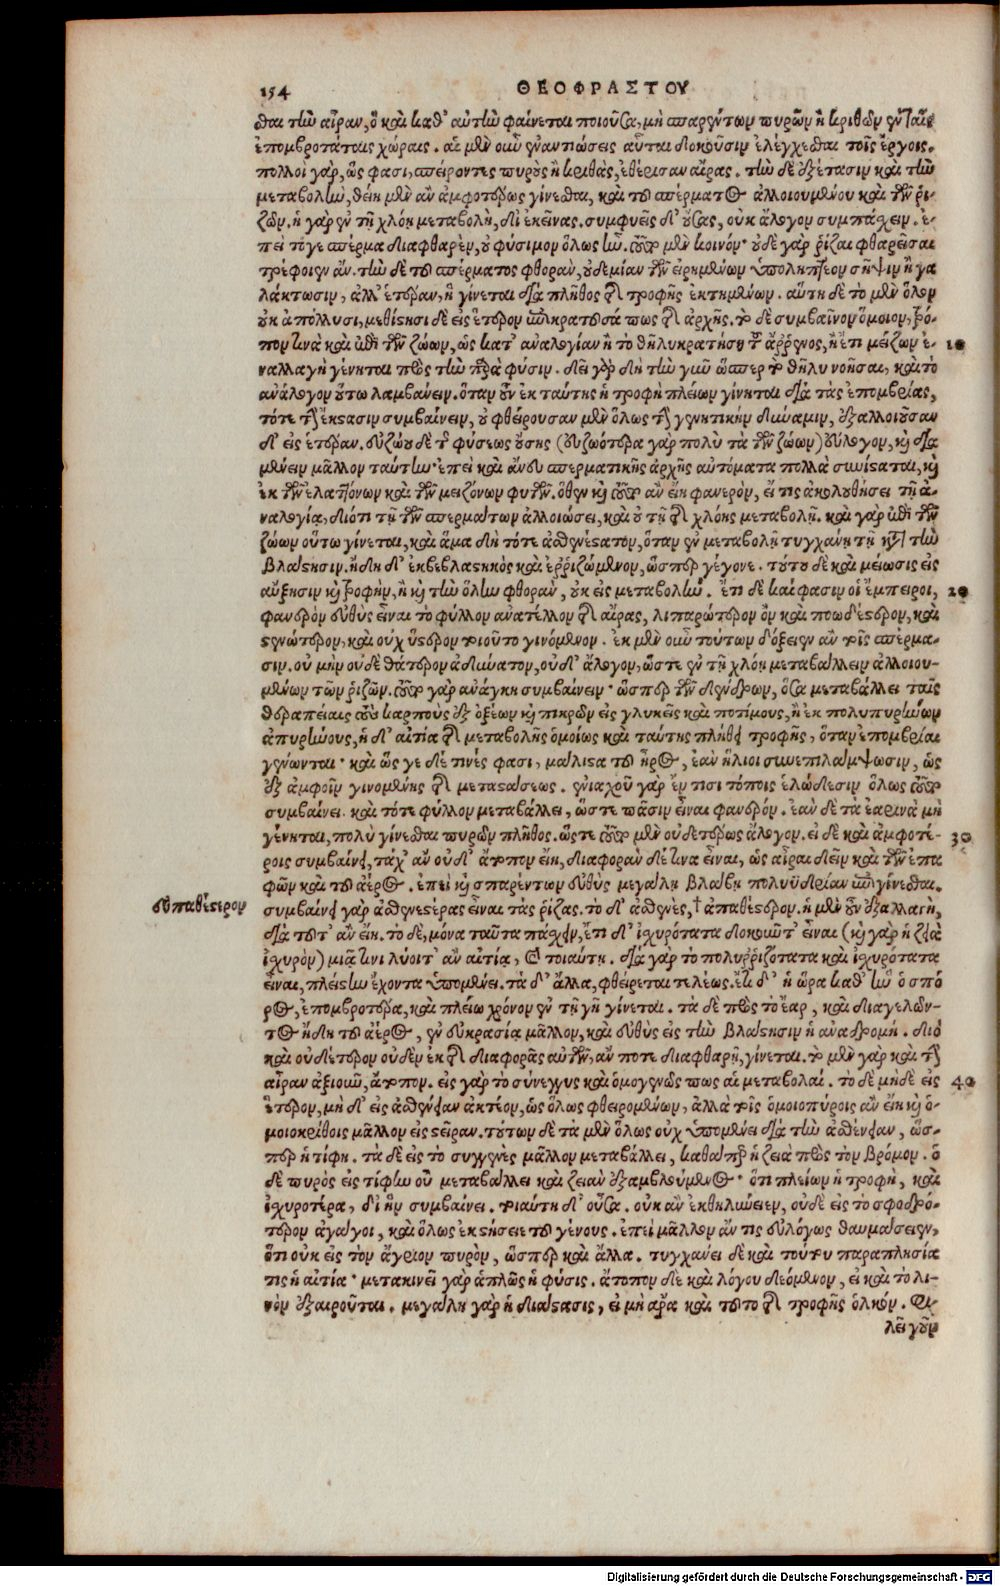 154 ΘΕΟΦΡΑΣΤΟΥ
σθαι τὴν αἶραν, ὃ καὶ καθ' αὑτὴν φαίνεται ποιοῦσα, μὴ σπαρέντων πυρῶν ἢ κριθῶν ἐν ταῖς
ἐπομβροτάταις χώραις. αἱ μὲν οὖν ἐναντιώσεις αὗται δοκοῦσιν ἐλέγχεσθαι τοῖς ἔργοις.
πολλοὶ γὰρ, ὥς φασι, σπείροντες πυρὸς ἢ κριθὰς, ἐθέρισαν αἶρας. τὴν δὲ ἐξέτασιν καὶ τὴν
μεταβολὴν, θείη μὲν ἂν ἀμφοτέρως γίνεσθαι, καὶ τοῦ σπέρματος ἀλλοιουμένου καὶ τῶν ῥι-
ζῶν. ἡ γὰρ ἐν τῇ χλόῃ μεταβολὴ, δι' ἐκείνας. συμφυεῖς δ' οὔσας, οὐκ ἄλογον συμπάσχειν. ἐ-
πεὶ τό γε σπέρμα διαφθαρὲν, οὐ φύσιμον ὅλως ἦν. τοῦτο μὲν κοινόν· οὐδὲ γὰρ ῥίζαι φθαρεῖσαι
τρέφοιεν ἄν. τὴν δὲ τοῦ σπέρματος φθορὰν, οὐδεμίαν τῶν εἰρημένων ὑποληπτέον σῆψιν ἢ γα
λάκτωσιν, ἀλλ' ἑτέραν, ἣ γίνεται διὰ πλῆθος τῆς τροφῆς ἐκτημένων. αὕτη δὲ τὸ μὲν ὅλον
οὐκ ἀπόλλυσι, μεθίστησι δὲ εἰς ἕτερον ἐπικρατοῦσά πως τῆς ἀρχῆς. τὸ δὲ συμβαῖνον ὅμοιον, τρό-
πον τινὰ καὶ ἐπὶ τῶν ζώων, ὡς κατ' ἀναλογίαν ἢ τὸ θῆλυ κρατήσῃ τοῦ ἄῤῥενος, ἢ ἔτι μείζων ἐ- 10
ναλλαγὴ γένηται πρὸς τὴν παρὰ φύσιν. δεῖ γὰρ δὴ τὴν γῆν ὥσπερ τὸ θῆλυ νοῆσαι, καὶ τὸ
ἀνάλογον οὕτω λαμβάνειν. ὅταν οὖν ἐκ ταύτης ἡ τροφὴ πλείων γίνηται διὰ τὰς ἐπομβρίας,
τότε τὴν ἔκστασιν συμβαίνειν, οὐ φθείρουσαν μὲν ὅλως τὴν γεννητικὴν δύναμιν, ἐξαλλοιοῦσαν
δ' εἰς ἕτερον. εὐζώου δὲ τῆς φύσεως οὔσης (εὐζωότερα γὰρ πολὺ τὰ τῶν ζώων) εὔλογον, καὶ δια
μένειν μᾶλλον ταύτην· ἐπεὶ καὶ ἄνευ σπερματικῆς ἀρχῆς αὐτόματα πολλὰ συνίσταται, καὶ
ἐκ τῶν ἐλαττόνων καὶ τῶν μειζόνων φυτῶν. ὅθεν καὶ τοῦτο ἂν εἴη φανερὸν, εἴ τις ἀκολουθήσει τῇ ἀ-
ναλογίᾳ, διότι τῇ τῶν σπερμάτων ἀλλοιώσει, καὶ οὐ τῇ τῆς χλόης μεταβολῇ. καὶ γὰρ ἐπὶ τῶν
ζώων οὕτω γίνεται, καὶ ἅμα δὴ τότε ἀσθενέστατον, ὅταν ἐν μεταβολῇ τυγχάνῃ τῇ κατὰ τὴν
βλάστησιν. ἤδη δ' ἐκβεβλαστηκὸς καὶ ἐῤῥιζωμένον, ὥσπερ γέγονε. τούτου δὲ καὶ μείωσις εἰς
αὔξησιν καὶ τροφὴν, ἢ καὶ τὴν ὅλην φθορὰν, οὐκ εἰς μεταβολήν. ἔτι δὲ καί φασιν οἱ ἔμπειροι, 20
φανερὸν εὐθὺς εἶναι τὸ φύλλον ἀνατέλλον τῆς αἴρας, λιπαρώτερον ὂν καὶ ποωδέστερον, καὶ
στενώτερον, καὶ οὐχ ὕστερον τοιοῦτο γινόμενον. ἐκ μὲν οὖν τούτων δόξειεν ἂν τοῖς σπέρμα-
σιν. οὐ μὴν οὐδὲ θάτερον ἀδύνατον, οὐδ' ἄλογον, ὥστε ἐν τῇ χλόῃ μεταβάλλειν ἀλλοιου-
μένων τῶν ῥιζῶν. τοῦτο γὰρ ἀνάγκη συμβαίνειν· ὥσπερ τῶν δένδρων, ὅσα μεταβάλλει ταῖς
θεραπείαις τοὺς καρποὺς ἐξ ὀξέων καὶ πικρῶν εἰς γλυκεῖς καὶ ποτίμους, ἢ ἐκ πολυπυρήνων
ἀπυρήνους, ἡ δ' αἰτία τῆς μεταβολῆς ὁμοίως καὶ ταύτης πλήθει τροφῆς, ὅταν ἐπομβρίαι
γένωνται· καὶ ὥς γε δέ τινές φασι, μάλιστα τοῦ ἦρος, ἐὰν ἥλιοι συνεπιλάμψωσιν, ὡς
ἐξ ἀμφοῖν γινομένης τῆς μεταστάσεως. ἐνιαχοῦ γὰρ ἔν τισι τόποις ἑλώδεσιν ὅλως τοῦτο
συμβαίνει. καὶ τότε φύλλον μεταβάλλει, ὥστε πᾶσιν εἶναι φανερόν. ἐὰν δὲ τὰ ἐαρινὰ μὴ
γένηται, πολὺ γίνεσθαι πυρῶν πλῆθος. ὥστε τοῦτο μὲν οὐδετέρως ἄλογον. εἰ δὲ καὶ ἀμφοτέ- 30
ροις συμβαίνει, τάχ' ἂν οὐδ' ἄτοπον εἴη, διαφορὰν δέ τινα εἶναι, ὡς αἶραι δεῖν καὶ τῶν ἐπα
φῶν καὶ τοῦ ἀέρος. ἐπεὶ καὶ σπαρέντων εὐθὺς μεγάλη βλάβη πολυϋδρίαν ἐπιγίνεσθαι.
εὐπαθέστερον συμβαίνει γὰρ ἀσθενεστέρας εἶναι τὰς ῥίζας. τὸ δ' ἀσθενὲς, † ἀπαθέστερον. ἡ μὲν οὖν ἐξαλλαγὴ,
διὰ τοῦτ' ἂν εἴη. τὸ δὲ, μόνα ταῦτα πάσχειν, ἔτι δ' ἰχυρότατα δοκοῦντ' εἶναι (καὶ γὰρ ἡ ζειὰ
ἰχυρὸν) μιᾷ τινι λύοιτ' ἂν αἰτίᾳ, καὶ τοιαύτῃ. διὰ γὰρ τὸ πολυῤῥιζότατα καὶ ἰχυρότατα
εἶναι, πλείστην ἔχοντα ὑπομένει. τὰ δ' ἄλλα, φθείρεται τελέως. ἔτι δ' ἡ ὥρα καθ' ἣν ὁ σπό
ρος, ἐπομβροτέρα, καὶ πλείω χρόνον ἐν τῇ γῇ γίνεται. τὰ δὲ πρὸς τὸ ἔαρ, καὶ διαγελῶν-
τος ἤδη τοῦ ἀέρος, ἐν εὐκρασίᾳ μᾶλλον, καὶ εὐθὺς εἰς τὴν βλάστησιν ἡ ἀναδρομή. διὸ
καὶ οὐδέτερον οὐδὲν ἐκ τῆς διαφορᾶς αὐτῶν, ἄν ποτε διαφθαρῇ, γίνεται. τὸ μὲν γὰρ καὶ τὴν
αἶραν ἀξιοῦν, ἄτοπον. εἰς γὰρ τὸ σύνεγγυς καὶ ὁμογενῶς πως αἱ μεταβολαί. τὸ δὲ μηδὲ εἰς 40
ἕτερον, μὴ δ' εἰς ἀσθένειαν ἀκτέον, ὡς ὅλως φθειρομένων, ἀλλὰ τοῖς ὁμοιοπύροις ἂν εἴη καὶ ὁ-
μοιοκρίθοις μᾶλλον εἰς στεῖραν. τούτων δὲ τὰ μὲν ὅλως οὐχ ὑπομένει διὰ τὴν ἀσθένειαν, ὥσ-
περ ἡ τίφη. τὰ δὲ εἰς τὸ συγγενὲς μᾶλλον μεταβάλλει, καθάπερ ἡ ζειὰ πρὸς τὸν βρόμον. ὁ
δὲ πυρὸς εἰς τίφην οὐ μεταβάλλει καὶ ζειὰν ἐξαμβλούμενος· ὅτι πλείων ἡ τροφὴ, καὶ
ἰχυροτέρα, δι' ἣν συμβαίνει. τοιαύτη δ' οὖσα. οὐκ ἂν ἐκθηλύνειεν, οὐδὲ εἰς τὸ σφοδρό-
τερον ἀγάγοι, καὶ ὅλως ἐκστήσειε τοῦ γένους. ἐπεὶ μᾶλλον ἄν τις εὐλόγως θαυμάσειεν,
ὅτι οὐκ εἰς τὸν ἄγριον πυρὸν, ὥσπερ καὶ ἄλλα. τυγχάνει δὲ καὶ τούτου παραπλησία
τις ἡ αἰτία· μετακινεῖ γὰρ ἁπλῶς ἡ φύσις. ἄτοπον δὲ καὶ λόγου δεόμενον, εἰ καὶ τὸ λι-
νὸν ἐξαιροῦται. μεγάλη γὰρ ἡ διάστασις, εἰ μὴ ἄρα καὶ τοῦτο τῆς τροφῆς ὁλκόν. ὀφεί-
λει γοῦν
Digitalisierung gefördert durch die Deutsche Forschungsgemeinschaft - DFG